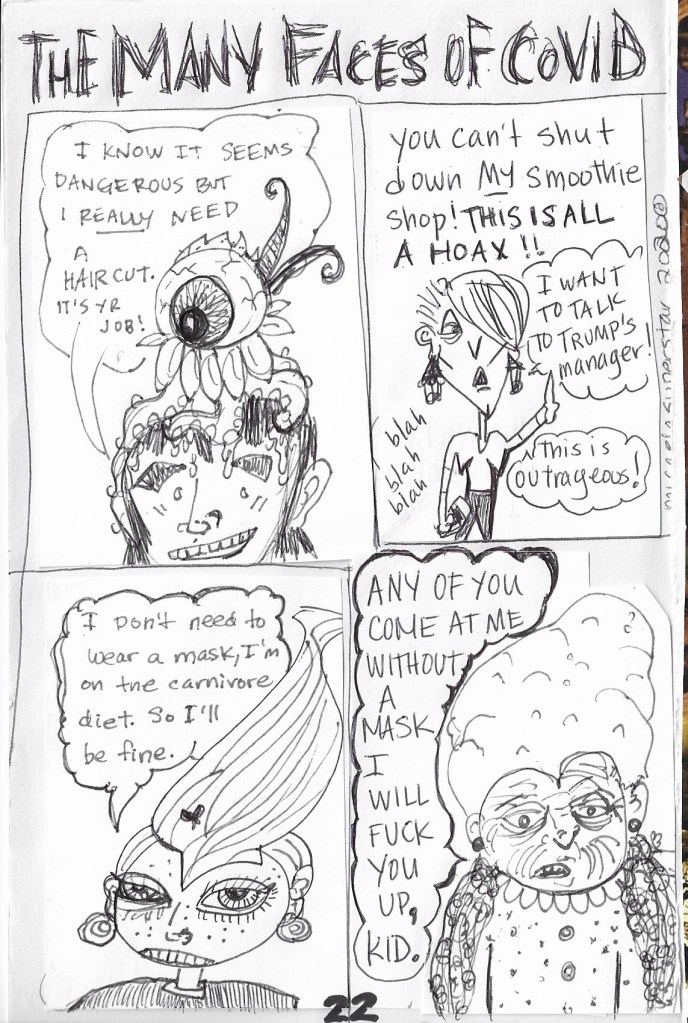 THE MANY FACES OF COVID
I KNOW IT SEEMS
DANGEROUS BUT
I REALLY NEED
A
HAIRCUT.
IT'S YR
JOB!
you can't shut
down MY smoothie
shop! THIS IS ALL
A HOAX!!
I WANT
TO TALK
TO TRUMP'S
manager!
blah
blah
blah
This is
outrageous!
I DON'T need to
wear a mask, I'm
on the carnivore
diet. So I'll
be fine.
ANY OF YOU
COME AT ME
WITHOUT
A
MASK
I
WILL
FUCK
YOU
UP,
KID.
22